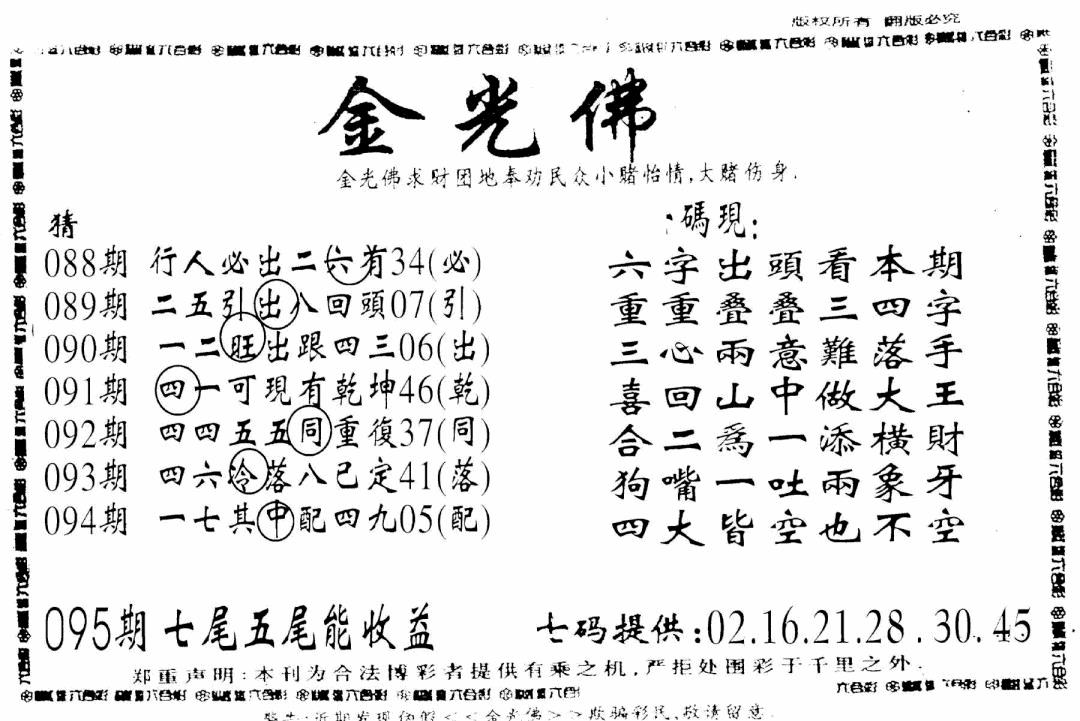 版权所有 翻版必究
金光佛
金光佛求财团地奉劝民众小赌怡情,大赌伤身.
猜
088期 行人必出二六有34(必)
089期 二五引出八回頭07(引)
090期 一二旺出跟四三06(出)
091期 四一可現有乾坤46(乾)
092期 四四五五同重復37(同)
093期 四六冷落八已定41(落)
094期 一七其中配四九05(配)
碼現:
六字出頭看本期
重重叠叠三四字
三心兩意難落手
喜回山中做大王
合二爲一添横財
狗嘴一吐兩象牙
四大皆空也不空
095期 七尾五尾能收益
七码提供:02.16.21.28.30.45
郑重声明:本刊为合法博彩者提供有乘之机,严拒处围彩于千里之外.
警告:近期发现伪假<<金光佛>>欺骗彩民,敬请留意.